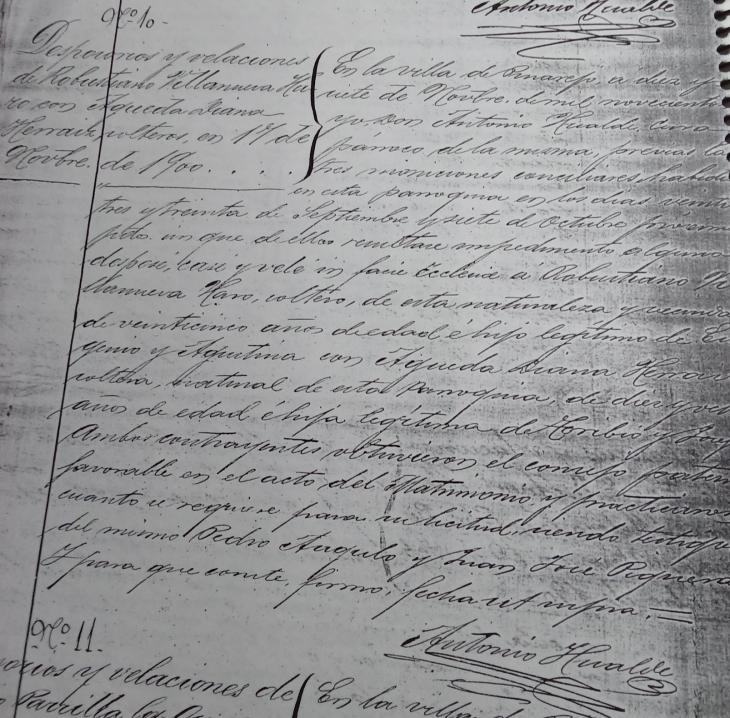 Antonio Hualde
Nº 10-
Desposorios y velaciones
de Robustiano Villanueva Ha-
ro con Águeda Diana
Herraiz solteros, en 17 de
Novbre. de 1900. . . .
En la villa de Pinarejo, a diez y
siete de Novbre. de mil novecientos
yo Don Antonio Hualde, cura
párroco de la misma, previas las
tres moniciones conciliares habid
en esta parroquia en los días veinti
tres y treinta de Septiembre y siete de Octubre próxim
pdo. sin que de ellas resultase impedimento alguno
desposé, casé y velé in facie Ecclesie a Robustiano Vi
llanueva Haro, soltero, de esta naturaleza y vecinda
de veinticinco años de edad é hijo legítimo de Eu
genio y Agustina con Águeda Diana Herraiz
soltera, natural de esta Parroquia, de diez y
años de edad é hija legítima de Toribio y
Ambos contrayentes obtuvieron el consejo patern
favorable en el acto del Matrimonio y practicaron
cuanto se requiere para su licitud, siendo testigos
del mismo Pedro Angulo y Juan José Piqueras
Y para que conste, firmo, fecha ut supra. =
Antonio Hualde
Nº 11.
orios y velaciones de
Parrilla
En la villa